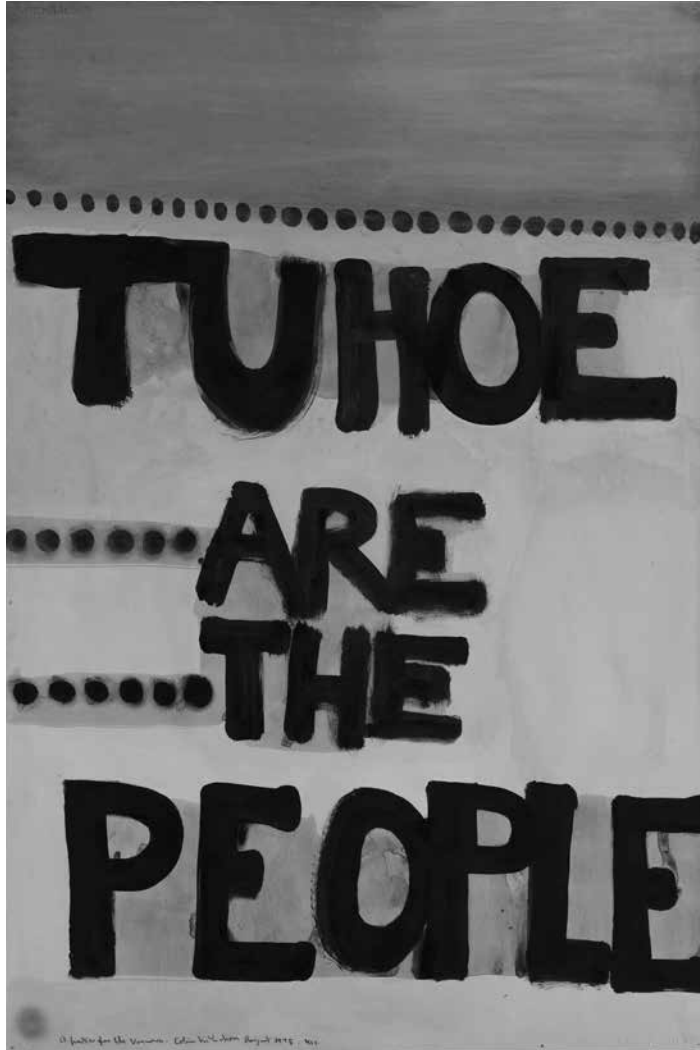 TUHOE
ARE
THE
PEOPLE
A poster for the Urewera. Colin McCahon August 1975